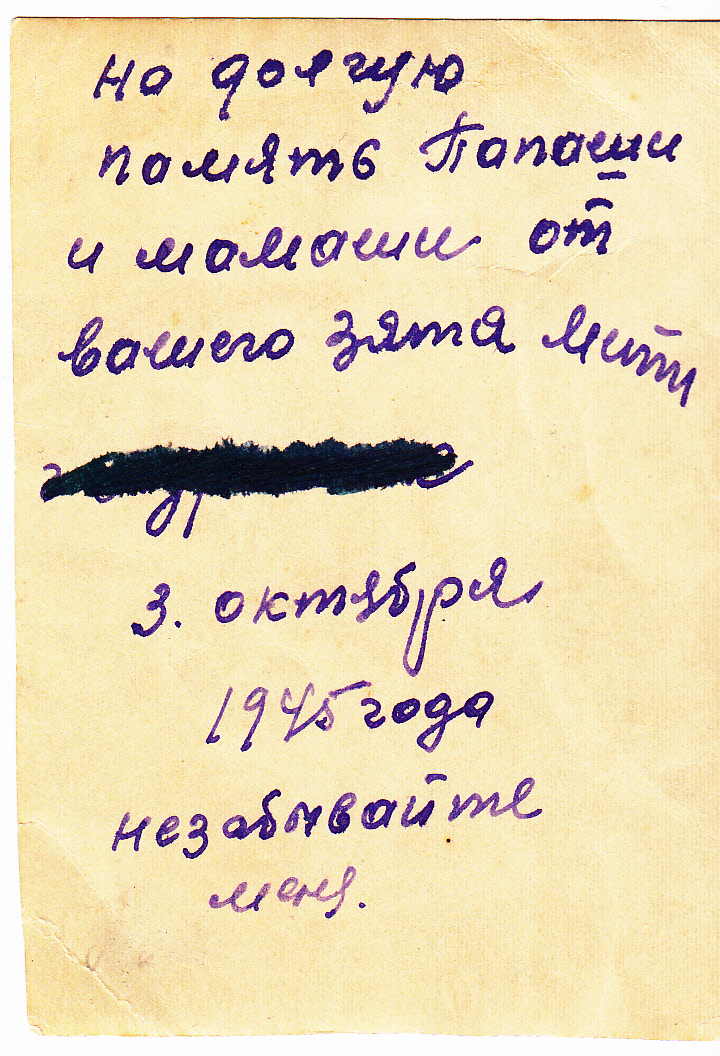 на долгую
память Папаши
и мамаши от
вашего зятя Мити
3. октября
1945 года
незабывайте
меня.